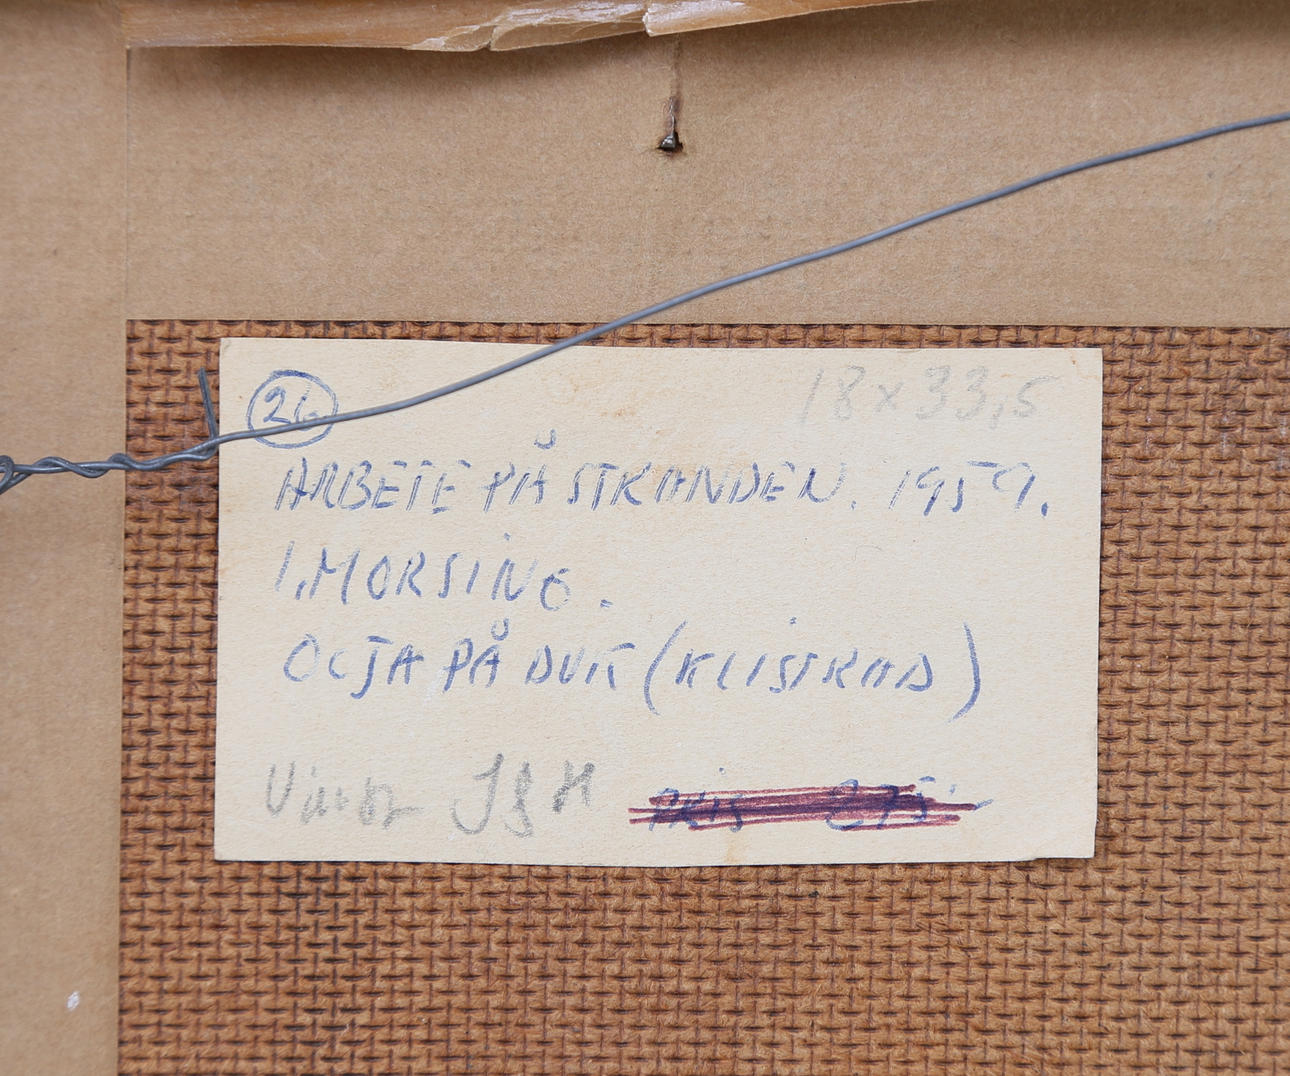 18x33,5
ARBETE PÅ STRANDEN. 1959.
I. MORSING.
OLJA PÅ DUK (KLISTRAD)
PRIS 275.-